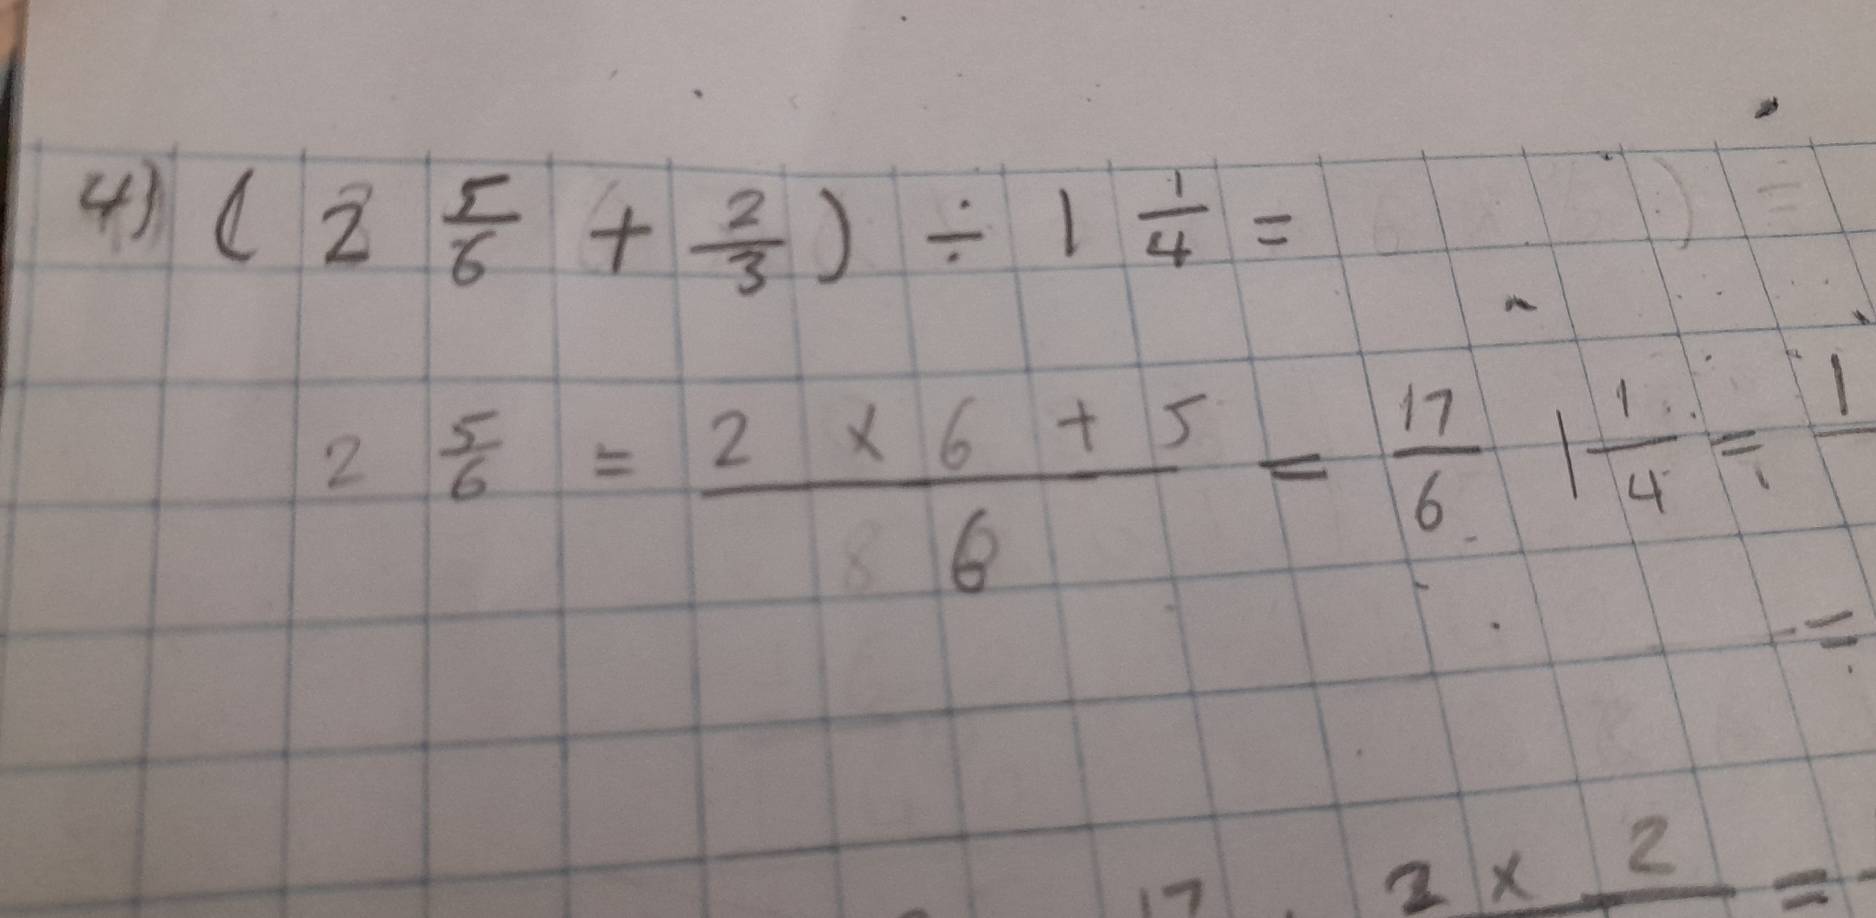 4) ( 2 5/6 + 2/3 ) ÷ 1 1/4 =
2 5/6 = 2 x 6 + 5 / 6 = 17/6 1 1/4 = 1
=
17 2 x 2 =